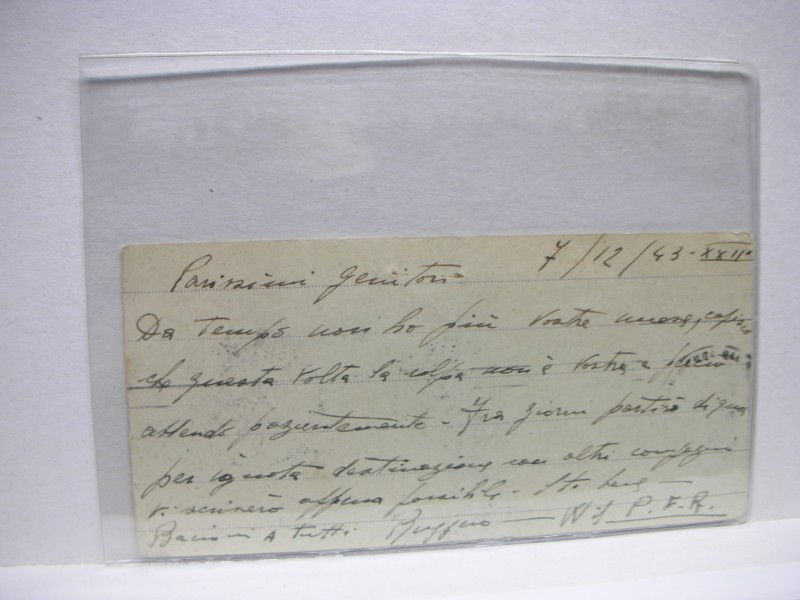 7/12/43-XXII°
Carissimi genitori
Da tempo non ho più vostre nuove, capisco
che questa volta la colpa non è vostra e perciò
attendo pazientemente - Fra giorni partirò di qua
per ignota destinazione con altri compagni
Vi scriverò appena possibile. Sto bene -
Bacioni a tutti Ruggero - W il P.F.R.